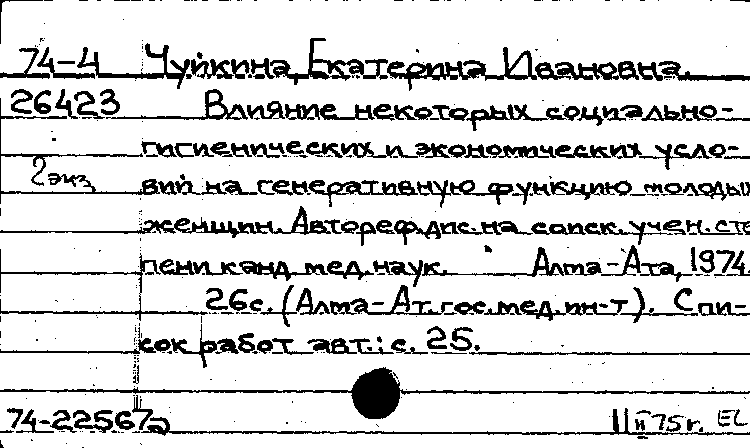 74-4 Чуйкина, Екатерина Ивановна.
26423 Влияние некоторых социально-
гигиенических и экономических усло-
2 экз вий на генеративную функцию молодых
женщин. Автореф. дис. на соиск. учен. сте
пени канд. мед. наук. Алма-Ата, 1974.
26с. (Алма-Ат. гос. мед. ин-т). Спи-
сок работ авт.: с. 25.
74-22567а 11 II 75 г. EL